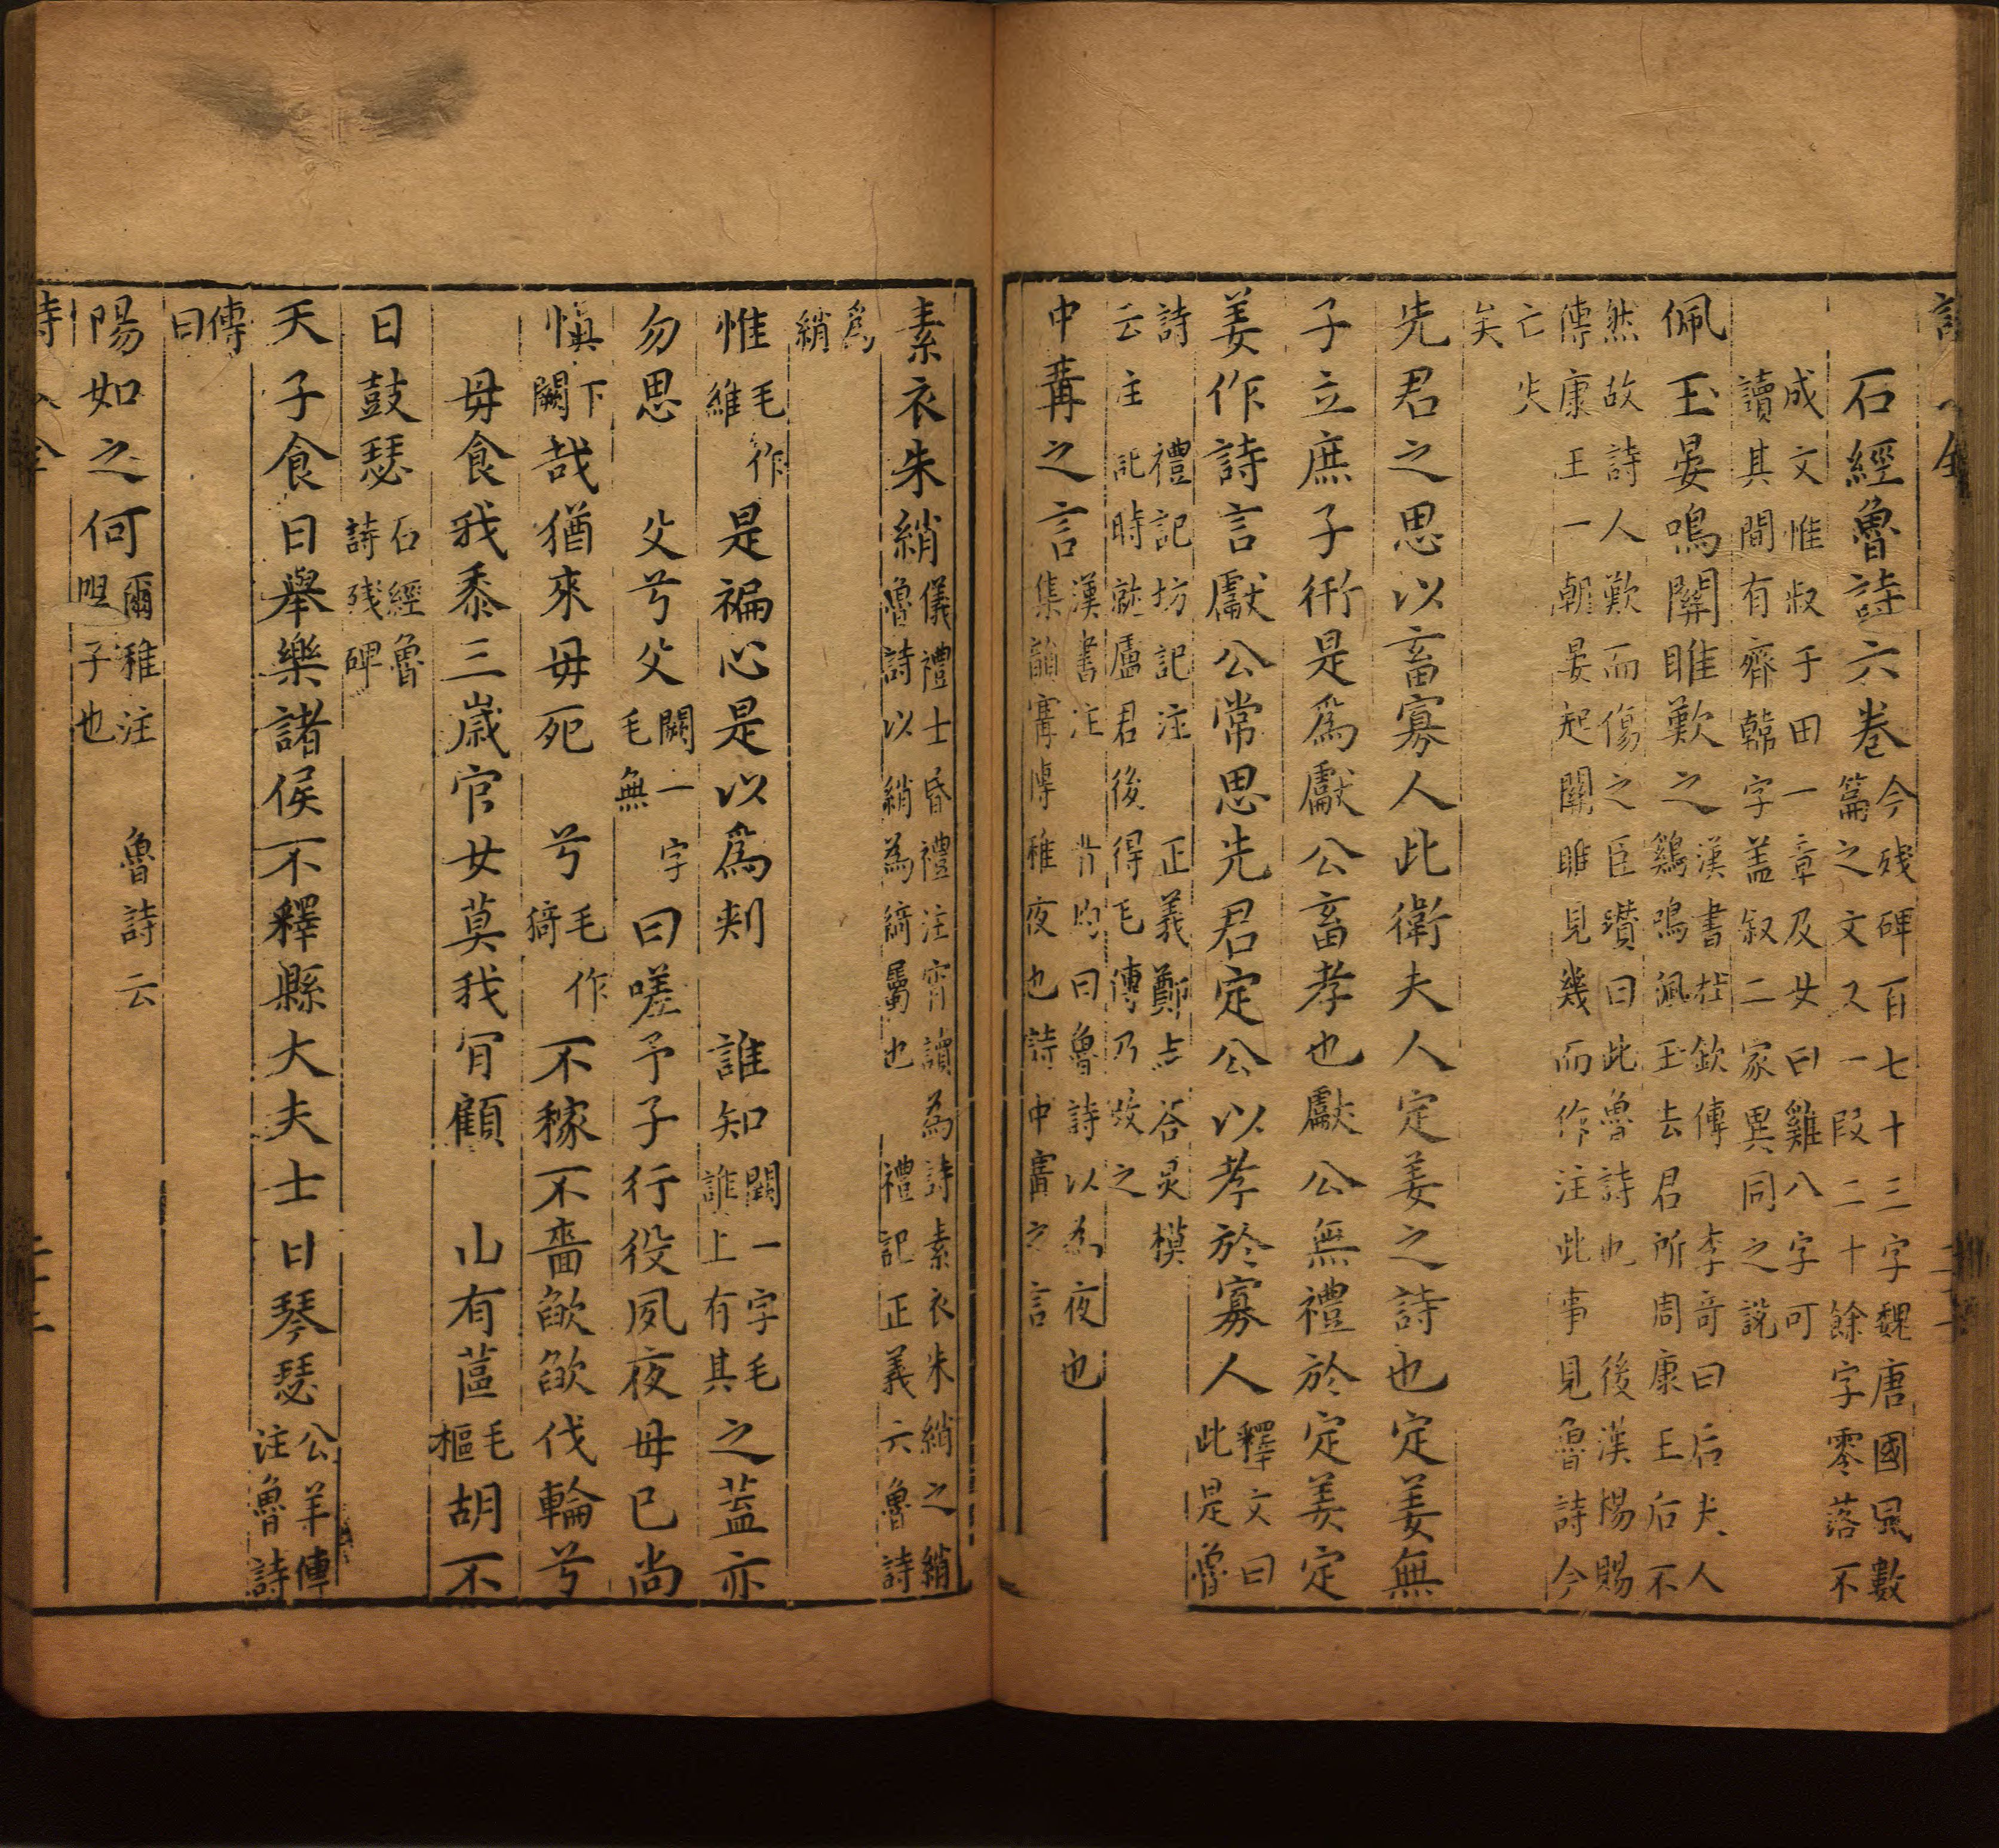 石經魯詩六卷今殘碑百七十三字魏唐國風數
篇之文又一段二十餘字零落不
成文惟叔于田一章及女曰雞八字可
讀其間有齊韓字蓋叙二家異同之說
佩玉晏鳴關雎歎之漢書杜欽傳 李奇曰后夫人
鷄鳴佩玉去君所周康王后不
然故詩人歎而傷之臣瓚曰此魯詩也 後漢楊賜
傳康王一朝晏起關雎見幾而作注此事見魯詩今
亡失
矣
先君之思以畜寡人此衛夫人定姜之詩也定姜無
子立庶子衎是爲獻公畜孝也獻公無禮於定姜定
姜作詩言獻公常思先君定公以孝於寡人釋文曰
此是魯
詩 禮記坊記注 正義鄭志荅炅模
云注記時就盧君後得毛傳乃改之
中冓之言漢書注 晋灼曰魯詩以為夜也
集韻㝅博雅夜也詩中㝅之言
素衣朱綃儀禮士昏禮注宵讀為詩素衣朱綃之綃
魯詩以綃為綺屬也 禮記正義六魯詩
爲
綃
惟毛作
維 是褊心是以爲刺 誰知闕一字毛
誰上有其之蓋亦
勿思 父兮父闕一字
毛無 曰嗟予子行役夙夜毋已尚
慎下
闕哉猶來毋死 兮毛作
猗 不稼不嗇欿欿伐輪兮
毋食我黍三歲宦女莫我肎顧 山有蓲毛
樞胡不
日鼓瑟石經魯
詩殘碑
天子食日舉樂諸侯不釋縣大夫士日琴瑟公羊傳
注魯詩
傳
曰
陽如之何爾雅注 魯詩云
咀子也